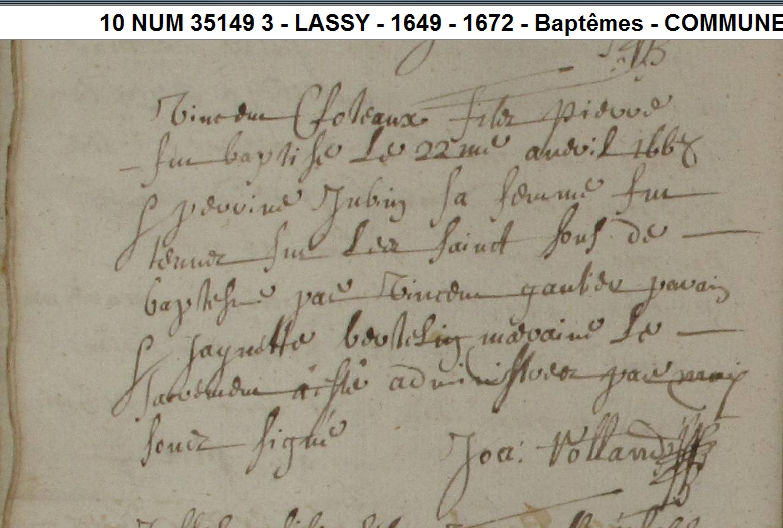 10 NUM 35149 3 - LASSY - 1649 - 1672 - Baptêmes - COMMUNE
Vincent Choleaux filz pierre
fut baptisé Le 22me apvril 1668
& perrine Jubin sa femme fut
tenuz sur Les sainct fons de
baptesme par Vincent gautier parain
& jaquette bertelin maraine Le
sacrement a esté administrez par moy
souz signé